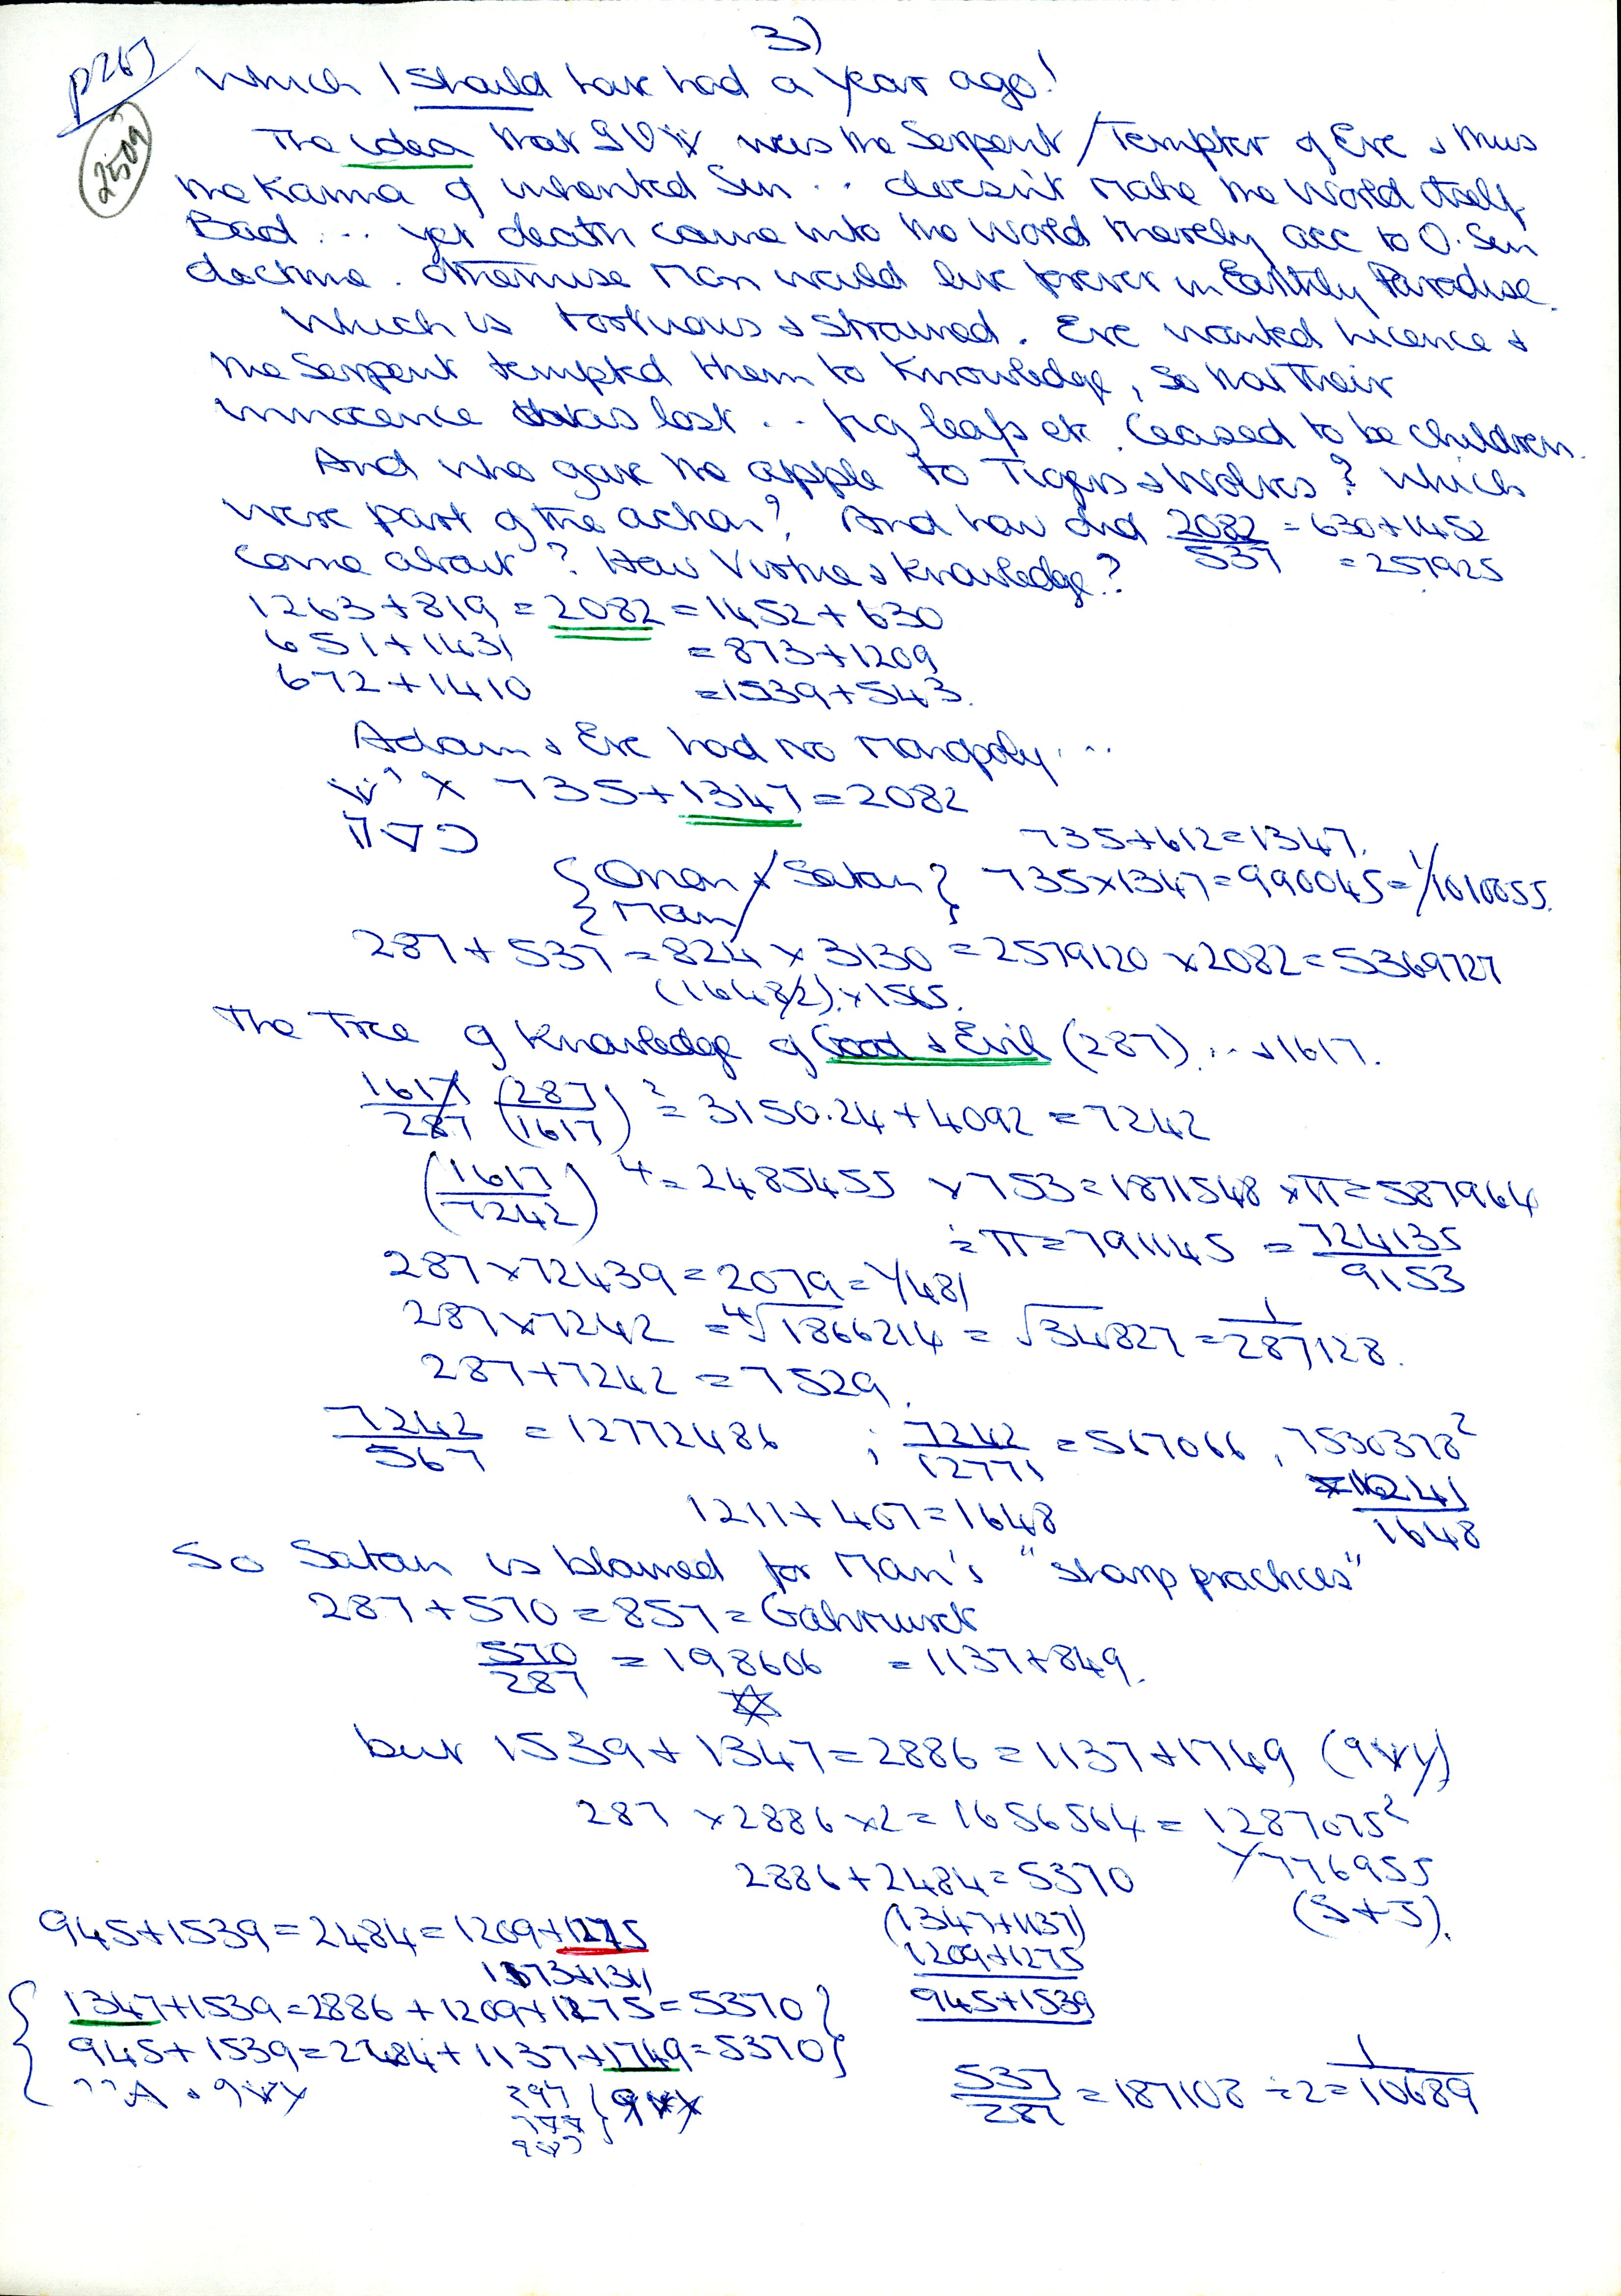 3)
p263
2509
Which I should have had a year ago!
The idea that was the Serpent / Tempter of Eve & thus
the Karma of inherited Sin .. doesn't make the World itself
Bad ... yet death came into the World thereby acc to O. Sin
doctrine. Otherwise Man would live forever in Earthly Paradise.
Which is tortuous & strained. Eve wanted licence &
the Serpent tempted them to Knowledge, so that their
innocence was lost .. fig leafs etc. Ceased to be children.
And who gave the apple to Tigers & Wolves? Which
were part of the action? And how did 2082/537 = 630+1452
= 257925
come about? How Virtue & Knowledge?
1263+819 = 2082 = 1452+630
651+1431 = 873+1209
672+1410 = 1539+543.
Adam & Eve had no Monopoly...
735+1347 = 2082
735+612=1347.
{ & Satan } 735×1347=990045=1/1010055.
{ Man
287+537=824 × 3130 = 2579120 ×2082=5369727
(1648/2)×1565.
The Tree of Knowledge of Good & Evil (287) ... & 1617.
1617/287 (287/1617)² = 3150.24+4092 = 7242
(1617/7242)⁴ = 2485455 ×753=1871548 ×π=587964
÷π=791145 = 724135/9153
287×72439=2079=1/481
287×7242 = ⁴√1866214 = √34827 = 1/287128.
287+7242 = 7529.
7242/567 = 12772486 ; 7242/12771 = 567066, 7530378²
1648
1211+407=1648
So Satan is blamed for Man's "sharp practices"
287+570=857=
570/287 = 198606 = 1137+849.
but 1539+1347=2886=1137+1749
287 ×2886×2=1656564=1287075²
1/776955
2886+2484=5370
(S+J).
(1347+1137)
1209+1275
945+1539
945+1539=2484=1209+1275
1173+1311
{ 1347+1539=2886+1209+1275=5370 }
{ 945+1539=2484+1137+1749=5370 }
537/287 = 187108 ÷2= 1/10689